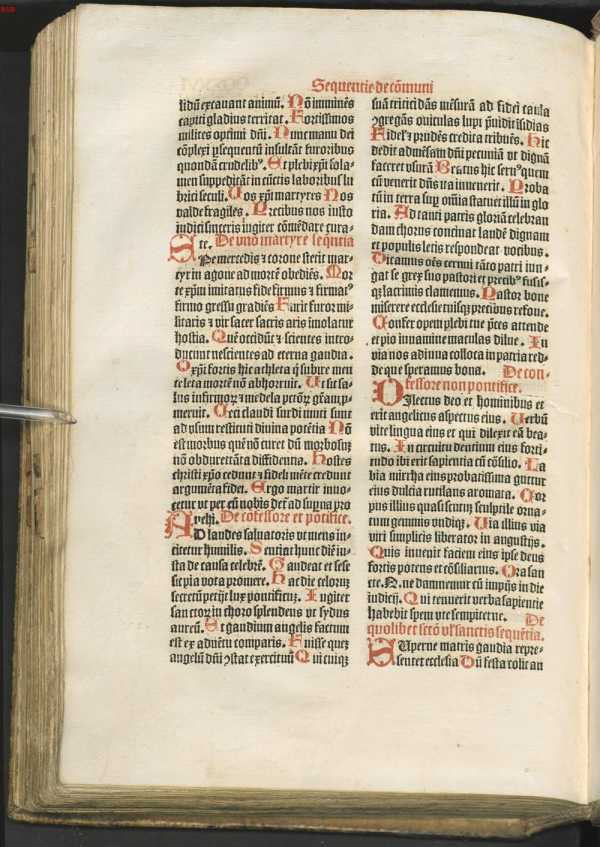 Sequentie de cōmuni
lidū excauant animū. Nō imminēs
capiti gladius territat. Fortissimos
milites optimi dn̄i. Nunc manu dei
cōplexi ꝑsequentū insultāt furoribus
quondā crudelibꝰ. Et plebi xp̄i sola-
men suppeditāt in cūctis laboribus lu
brici seculi. Uos xp̄i martyres Nos
valde fragiles. Precibus nos insto
iudici sinceris iugiter cōmēdare cura-
te. De vno martyre seq̄ntia
SJne mercedis ⁊ corone sterit mar-
tyr in agone ad mortē obediēs. Mor
te xp̄m imitatus fide firmus ⁊ firmatꝰ
firmo gressu gradiēs Furit furor mi-
litaris ⁊ vir sacer sacris aris imolatur
hostia. Quē occidūt ⁊ scientes intro-
ducunt nescientes ad eterna gaudia.
O xp̄i fortis hic athleta q̄ subire men
te leta mortē nō abhorruit. Ut sit sa-
lus infirmoꝝ ⁊ medela pctōꝝ gr̄am ꝓ-
meruit. Ceci claudi surdi muti sunt
ad vsum restituti diuina potētia Nō
est morbus quē nō curet dū morbosꝰ
nō obduret tāta diffidentia. Hostes
christi xp̄o cedunt ⁊ fideli mēte credunt
argumēta fidei. Ergo martir inuo-
cetur vt per eū nobis det̄ ad supna pro
uehi. De cōfessore et pōtifice.
AD laudes saluatoris vt mens in-
citetur humilis. Senciat hunc diē iu-
sta de causa celebrē. Gaudeat et sese
set pia vota promere. Hac die celoꝝ
secretū petijt lux pontificuꝫ. Jugiter
sanctoꝝ in choro splendens vt sydus
aureū. Et gaudium angelis factum
est ex aduētu comparis. Fuisse queꝫ
angelū dn̄i ꝯstat exercituū Qui cuiqꝫ
suā tritici dās mēsurā ad fidei caula
ꝯgregās ouiculas lupi p̄uidit īsidias
Fidelꝭ ⁊ prudēs credita tribuēs. Hic
dedit ad mēsam dn̄i pecuniā vt dignā
faceret vsurā Beatus hic seruꝰ quem
cū venerit dn̄s ita inuenerit. Proba
tū in terra sup omīa statuet illū in glo
ria. Ad tanti patris gloriā celebran
dam chorus concinat laudē dignam
et populis letis respondeat vocibus.
Dicamus oēs cerni tāto patri iun-
gat se grex suo pastori et precibꝰ fusis-
qꝫ lacrimis clamemus. Pastor bone
miserere ecclesie tuisqꝫ precibus refoue.
Confer opem plebi tue p̄ces attende
et pio iuuamine maculas dilue. Jn
via nos adiuua colloca in patria red-
de que speramus bona. De con-
fessore non pontifice.
DJlectus deo et hominibus et
erit angelicus aspectus eius. Uerbū
vite lingua eius et qui dilexit eā bea-
tus. Jn circuitu dentium eius forti-
tudo ibi erit sapientia cū cōsilio. La
bia mirrha eius probatissima guttur
eius dulcia rutilans aromata. Cor
pus illius quasi sentix sculptile orna-
tum gemmis vndiqꝫ. Uia illius via
viri simplicis liberator in angustijs.
Quis inuenit faciem eius ipse deus
fortis potens et cōsiliarius. Ora san
cte. N. ne damnemur cū impijs in die
iudicij. Qui tenuerit verba sapientie
habebit spem vite sempiterne. De
quolibet sctō vl̓ sanctis sequētia.
SUperne matris gaudia repre-
sentet ecclesia Dū festa colit an